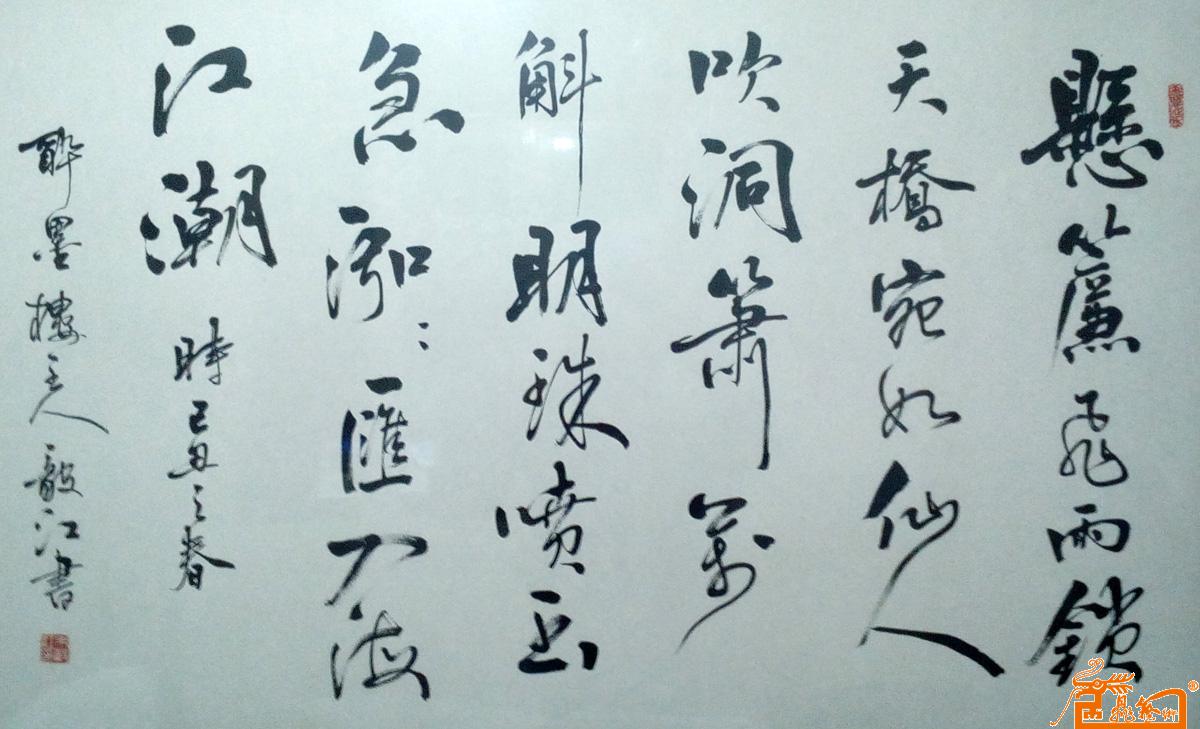 懸簾飛雨鎖
天橋宛如仙人
吹洞簫萬
斛明珠噴玉
急泓〻匯入海
江潮 時己丑之春
酔墨樓主人 毅江書